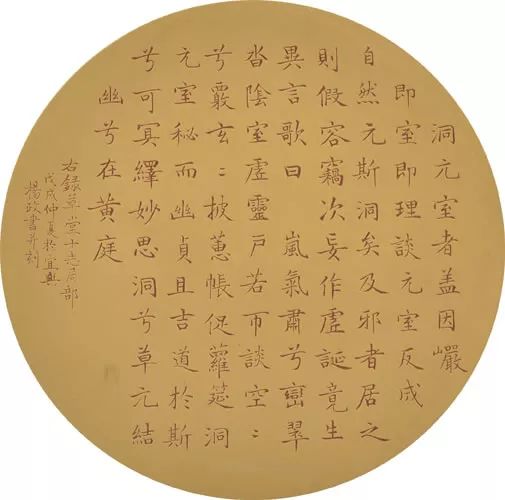 洞元室者盖因巖
即室即理談元室反成
自然元斯洞矣及邪者居之
則假容竊次妄作虛誕竟生
異言歌曰 嵐氣肅兮巒翠
沓陰室虛靈戶若帀談空〻
兮覈玄〻披蕙帳促蘿筵洞
元室秘而幽貞且吉道於斯
兮可冥繹妙思洞兮草元結
幽兮在黃庭
右録草堂十志局部
戊戌仲夏於宜興
楊政書并刻